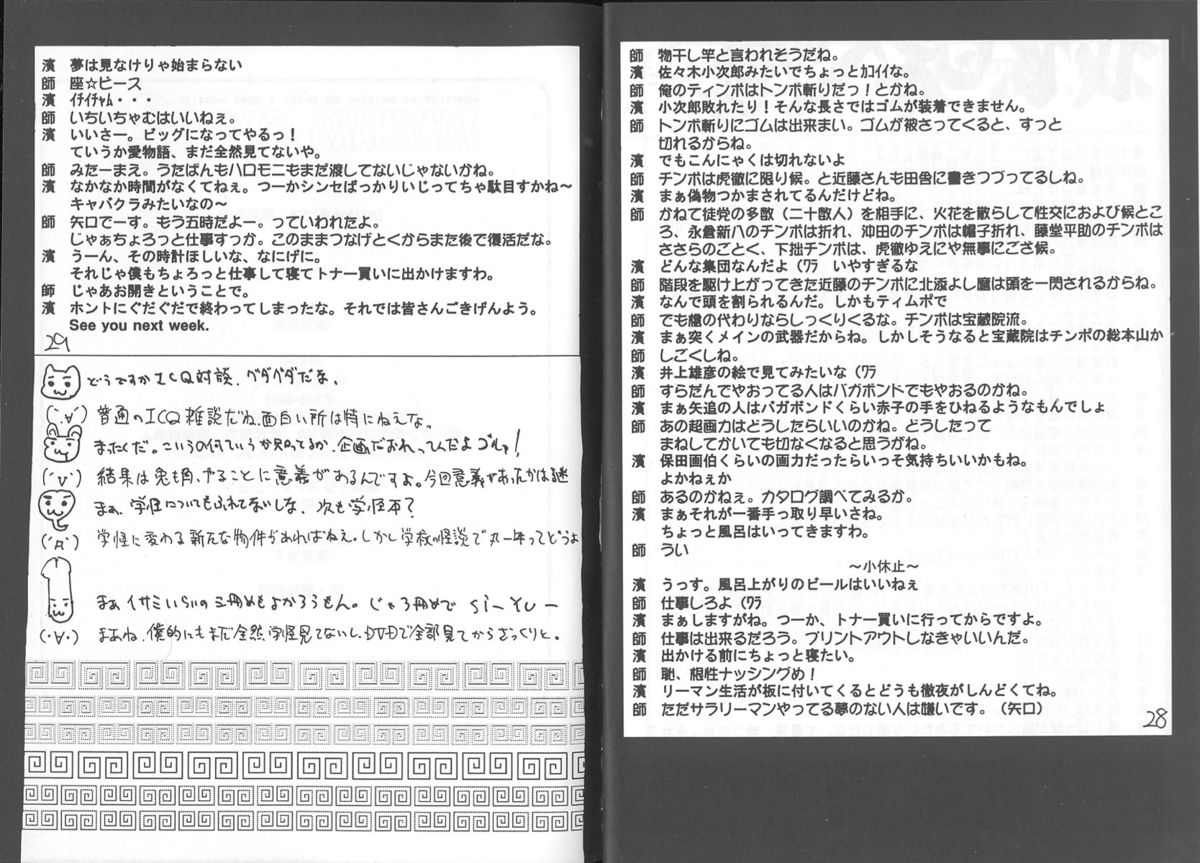 師 物干し竿と言われそうだね。
濱 佐々木小次郎みたいでちょっとｶｺｲｲな。
師 俺のティンポはトンボ斬りだっ！とかね。
濱 小次郎敗れたり！そんな長さではゴムが装着できません。
師 トンボ斬りにゴムは出来まい。ゴムが被さってくると、すっと
切れるからね。
濱 でもこんにゃくは切れないよ
師 チンポは虎徹に限り候。と近藤さんも田舎に書きつづってるしね。
濱 まぁ偽物つかまされてるんだけどね。
師 かねて徒党の多数（二十数人）を相手に、火花を散らして性交におよび候とこ
ろ、永倉新八のチンポは折れ、沖田のチンポは帽子折れ、藤堂平助のチンポは
ささらのごとく、下拙チンポは、虎徹ゆえにや無事にござ候。
濱 どんな集団なんだよ（ﾜﾗ いやすぎるな
師 階段を駆け上がってきた近藤のチンポに北添よし麿は頭を一閃されるからね。
濱 なんで頭を割られるんだ。しかもティムポで
師 でも槍の代わりならしっくりくるな。チンポは宝蔵院流。
濱 まぁ突くメインの武器だからね。しかしそうなると宝蔵院はチンポの総本山か
師 しごくしね。
濱 井上雄彦の絵で見てみたいな（ﾜﾗ
師 すらだんでやおってる人はバガボンドでもやおるのかね。
濱 まぁ矢追の人はバガボンドくらい赤子の手をひねるようなもんでしょ
師 あの超画力はどうしたらいいのかね。どうしたって
まねしてかいても切なくなると思うがね。
濱 保田画伯くらいの画力だったらいっそ気持ちいいかもね。
よかねぇか
師 あるのかねぇ。カタログ調べてみるか。
濱 まぁそれが一番手っ取り早いさね。
ちょっと風呂はいってきますわ。
師 うい
～小休止～
濱 うっす。風呂上がりのビールはいいねぇ
師 仕事しろよ（ﾜﾗ
濱 まぁしますがね。つーか、トナー買いに行ってからですよ。
師 仕事は出来るだろう。プリントアウトしなきゃいいんだ。
濱 出かける前にちょっと寝たい。
師 馳、根性ナッシングめ！
濱 リーマン生活が板に付いてくるとどうも徹夜がしんどくてね。
師 ただサラリーマンやってる夢のない人は嫌いです。（矢口）
28
濱 夢は見なけりゃ始まらない
師 座☆ピース
濱 ｲﾁｲﾁｬﾑ・・・
師 いちいちゃむはいいねぇ。
濱 いいさー。ビッグになってやるっ！
ていうか愛物語、まだ全然見てないや。
師 みたーまえ。うたばんもハロモニもまだ渡してないじゃないかね。
濱 なかなか時間がなくてねぇ。つーかシンセばっかりいじってちゃ駄目すかね～
キャバクラみたいなの～
師 矢口でーす。もう五時だよー。っていわれたよ。
じゃぁちょろっと仕事すっか。このままつなげとくからまた後で復活だな。
濱 うーん、その時計ほしいな、なにげに。
それじゃ僕もちょろっと仕事して寝てトナー買いに出かけますわ。
師 じゃあお開きということで。
濱 ホントにぐだぐだで終わってしまったな。それでは皆さんごきげんよう。
See you next week.
29
どうですかICQ対談、グダグダだな。
(´∀`) 普通のICQ雑談だね、面白い所は特にねえな。
まったくだ。こういうの何ていうか知ってるか、企画だおれ、ってんだよゴルァ！
(`∀´) 結果は兎も角、やることに意義があるんですよ。今回意義があったかは謎
まぁ、学怪についてもふれておいしな、次も学怪本？
(´Д`) 学怪に変わる新たな物件があればねえ。しかし学校の怪談で丸一年ってどうよ
まぁイサミいらいの三冊めもよかろうもん。じゃ3冊めで si-Yu-
(・∀・) まぁね、僕的にもまだ全然学怪見てないし、DVDで全部見てからざっくりと。